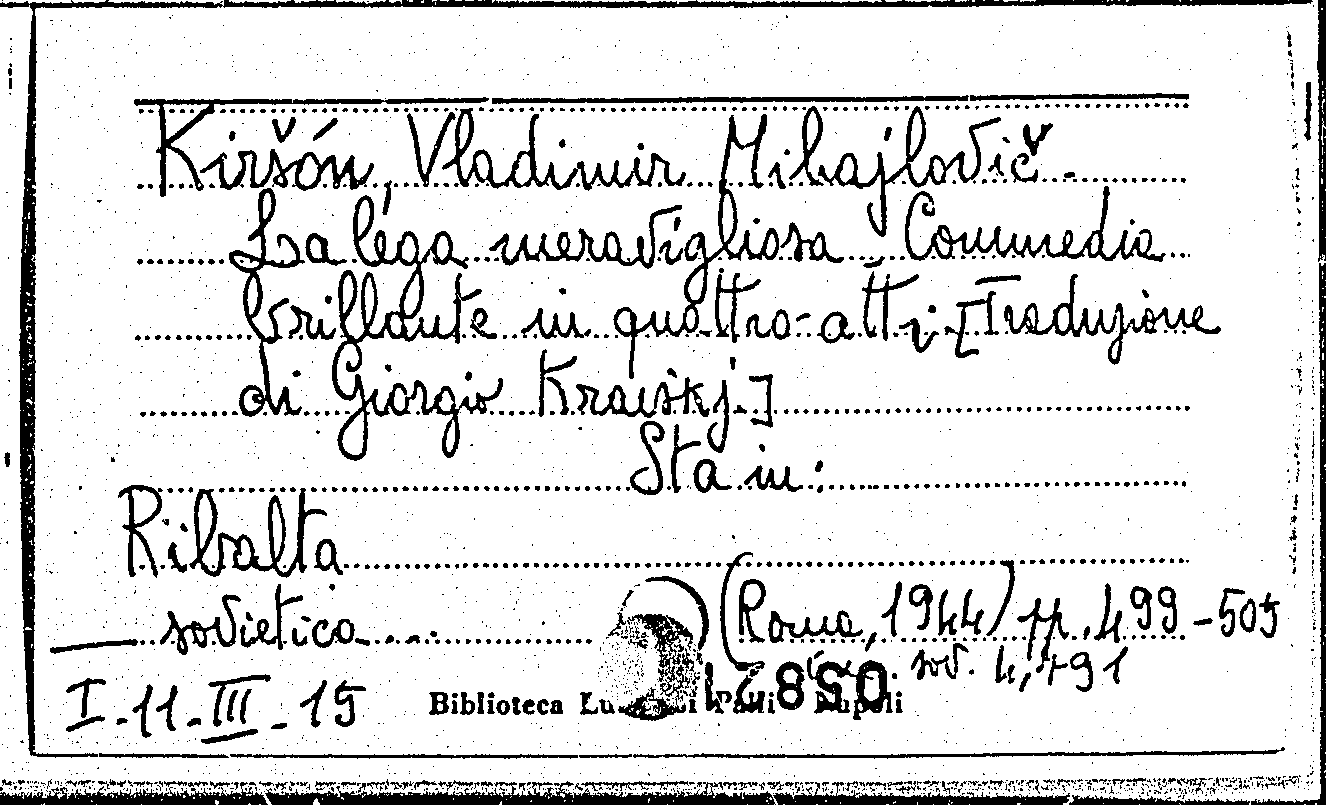 Kiršón, Vladimir Mihajlovič.
La lega meravigliosa Commedia
brillante in quattro atti [Traduzione
di Giorgio Kraiskj.]
Sta in:
Ribalta
sovietica....
(Roma, 1944) pp. 499-505
sov. 4,491
I-11-III-15
Biblioteca